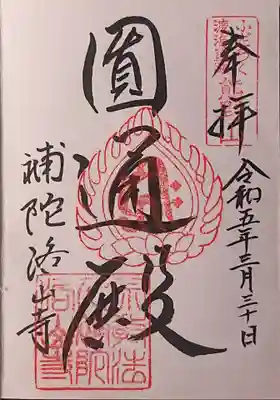 奉拝
令和五年三月三十日
圓通殿
補陀洛山寺